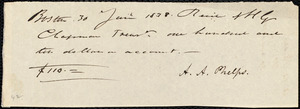 Boston 30 June 1838. Rec'd of H G
Chapman Treasr. one hundred and
ten dollars on account —
$110.—
A. A. Phelps.